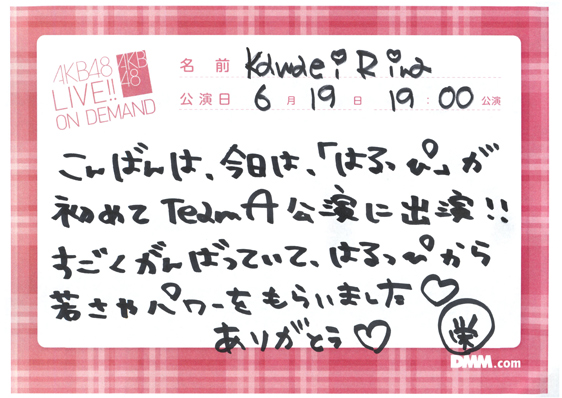 AKB48
LIVE!!
ON DEMAND
AKB
48
名前 Kawaei Rina
公演日 6月19日 19:00公演
こんばんは、今日は、「はるっぴ」が
初めてTeamA公演に出演!!
すごくがんばっていて、はるっぴから
若さやパワーをもらいました♡
ありがとう♡
栄
DMM.com